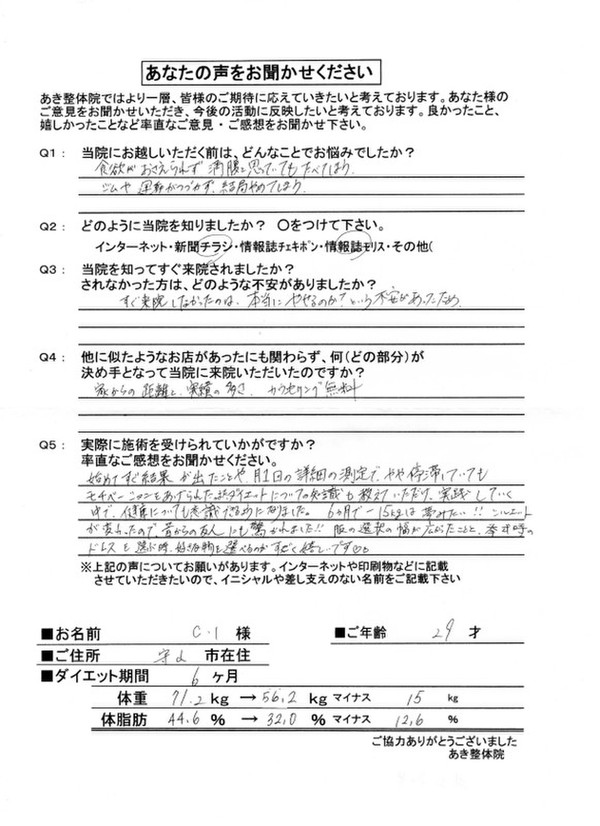 あなたの声をお聞かせください
あき整体院ではより一層、皆様のご期待に応えていきたいと考えております。あなた様の
ご意見をお聞かせいただき、今後の活動に反映したいと考えております。良かったこと、
嬉しかったことなど率直なご意見・ご感想をお聞かせ下さい。
Q1： 当院にお越しいただく前は、どんなことでお悩みでしたか？
食欲がおさえられず 満腹と思っていてもたべてしまう。
ジムや 運動がつづかず、結局やめてしまう。
Q2： どのように当院を知りましたか？ 〇をつけて下さい。
インターネット・新聞チラシ・情報誌チェキポン・情報誌モリス・その他(
Q3： 当院を知ってすぐ来院されましたか？
されなかった方は、どのような不安がありましたか？
すぐ来院しなかったのは、本当にやせるのか？という不安があったため
Q4： 他に似たようなお店があったにも関わらず、何（どの部分）が
決め手となって当院に来院いただいたのですか？
家からの距離と、実績の多さ、カウンセリング無料
Q5： 実際に施術を受けられていかがですか？
率直なご感想をお聞かせください。
始めてすぐ結果が出たことや、月1日の詳細の測定で、やや停滞していても
モチベーションをあげられた。またダイエットについての知識も教えていただけ、実践していく
中で、健康についても意識できるようになりました。 6ヵ月で－15kgは夢みたい!! シルエット
が変わったので、昔からの友人にも驚かれました!! 服の選択の幅が広がったことと、挙式時の
ドレスを選ぶ時、好きな物を選べるのがすごく嬉しいです
※上記の声についてお願いがあります。インターネットや印刷物などに記載
させていただきたいので、イニシャルや差し支えのない名前をご記載下さい
■お名前 C・I 様 ■ご年齢 29 才
■ご住所 守山 市在住
■ダイエット期間 6 ヶ月
体重 71.2 kg → 56.2 kg マイナス 15 kg
体脂肪 44.6 % → 32.0 % マイナス 12.6 %
ご協力ありがとうございました
あき整体院